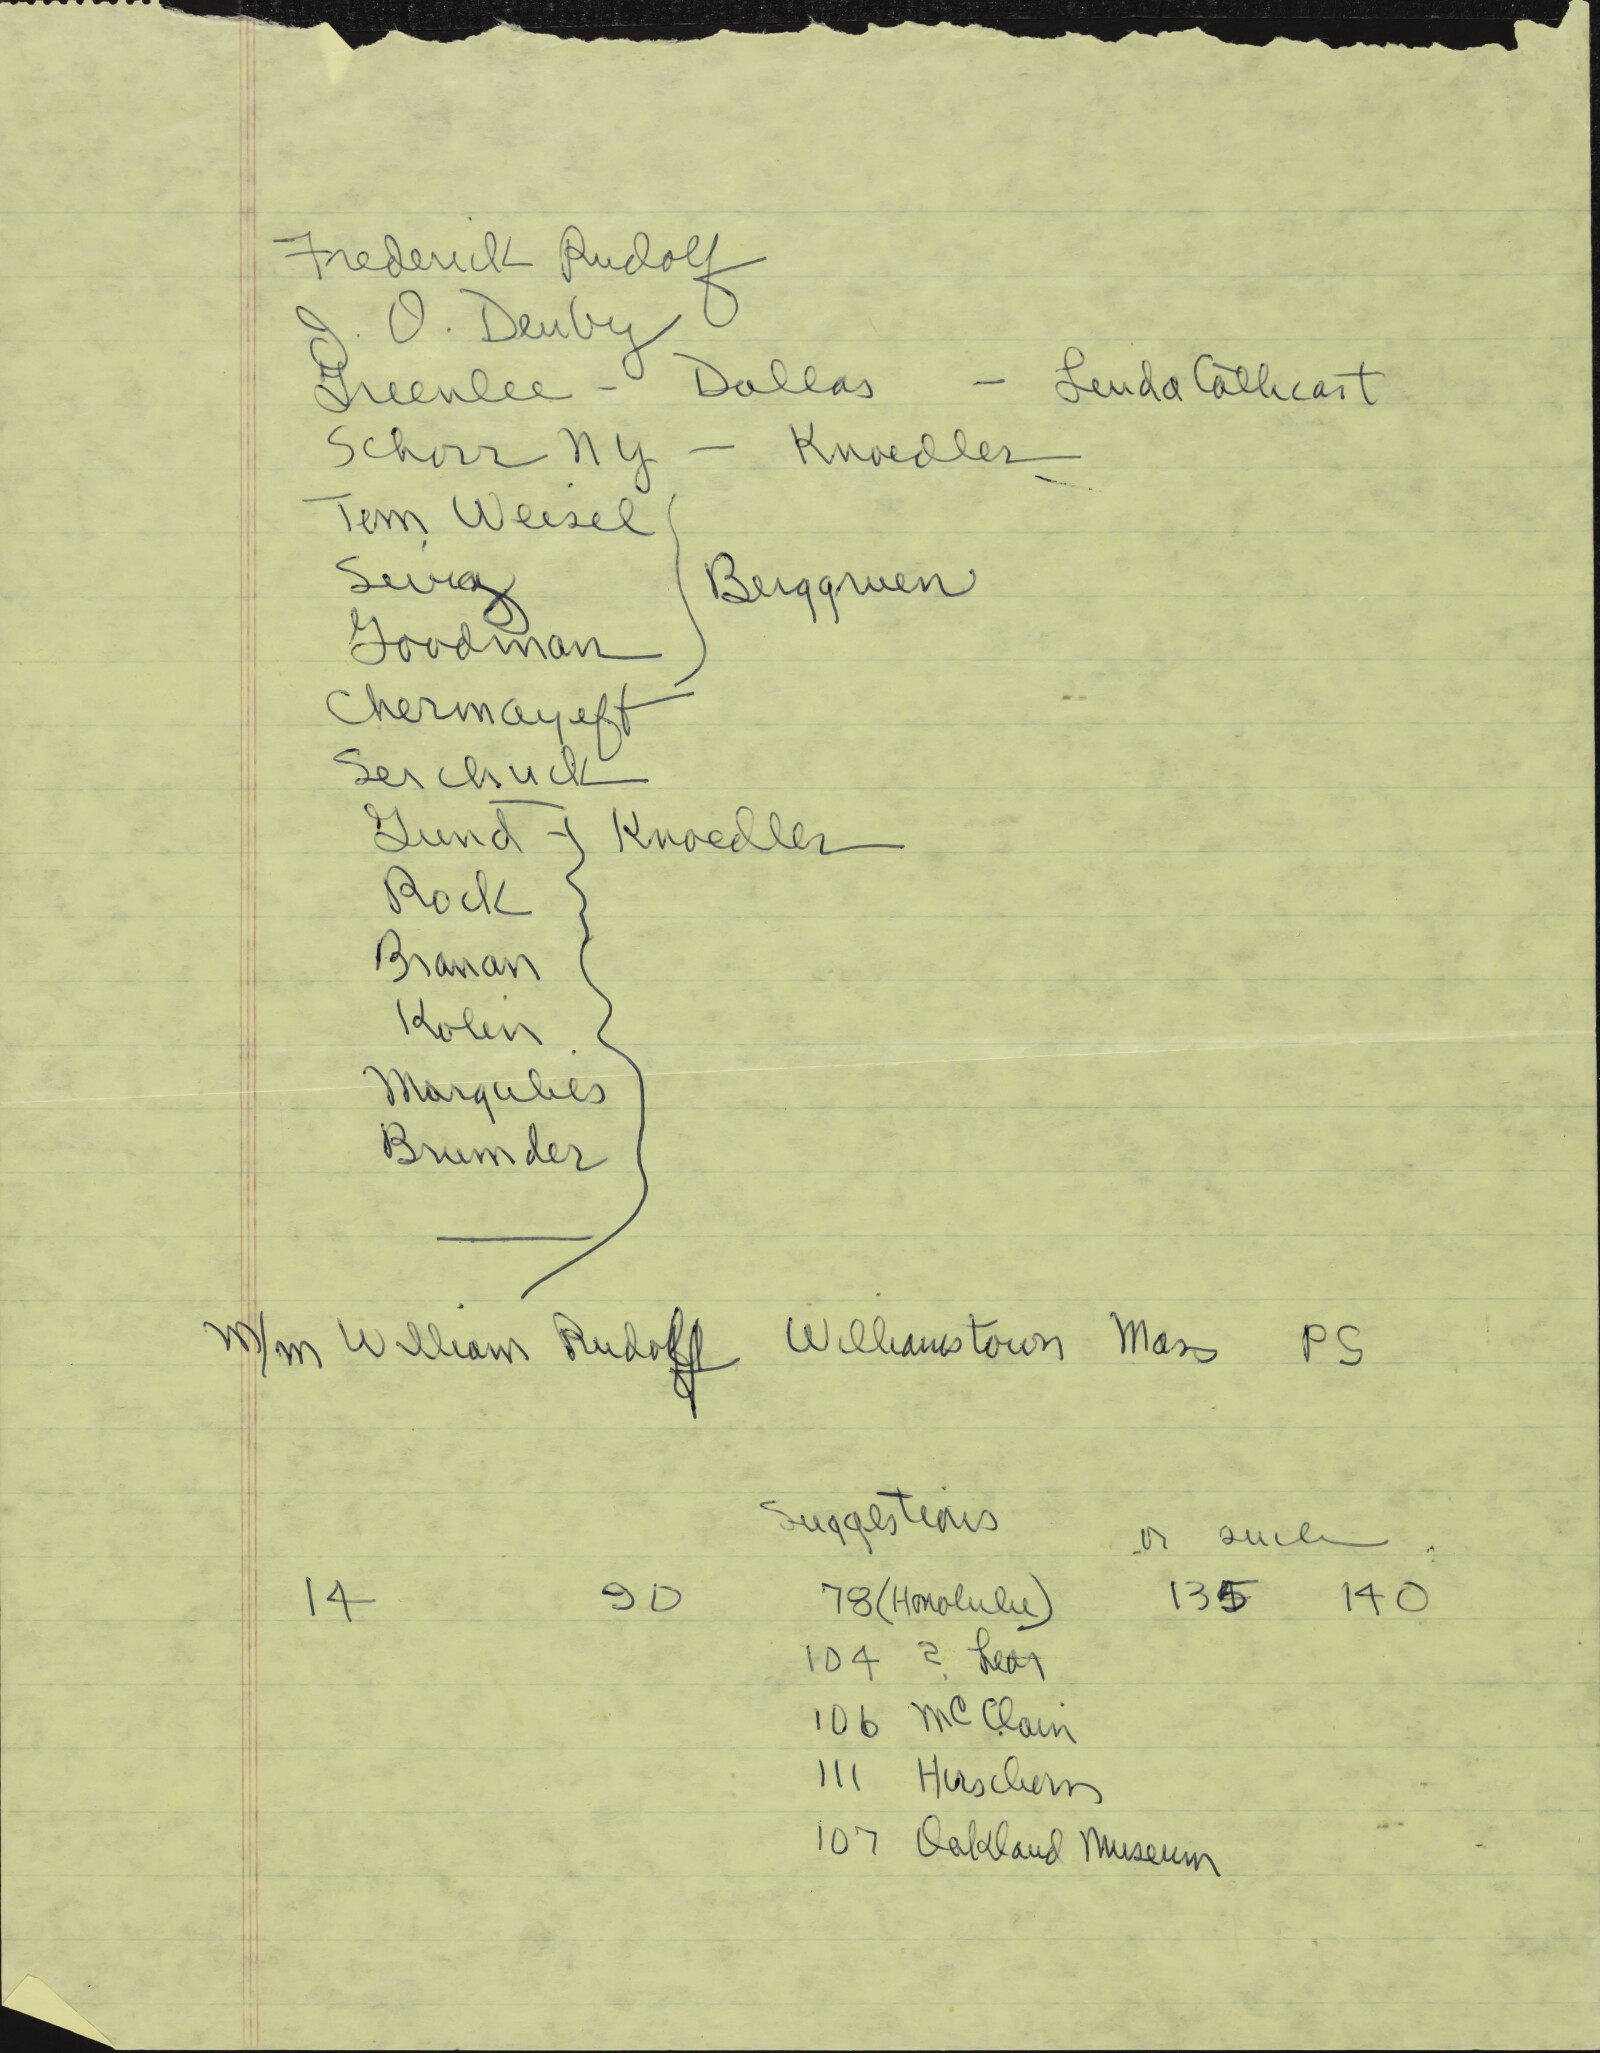 Frederick Rudolf
J. O. Denby
Greenlee - Dallas - Linda Cathcart
Schorr NY - Knoedler
Tom Weisel
Goodman } Berggruen
Chermayeff
Serchuck
Gund - } Knoedler
Rock
Branan
Kolin
Margulies
Brumder
M/M William Rudolff Williamstown Mass PS
Suggestions or such
14 90 78 (Honolulu) 135 140
104 ? Lear
106 McClain
111 Hirschorn
107 Oakland Museum